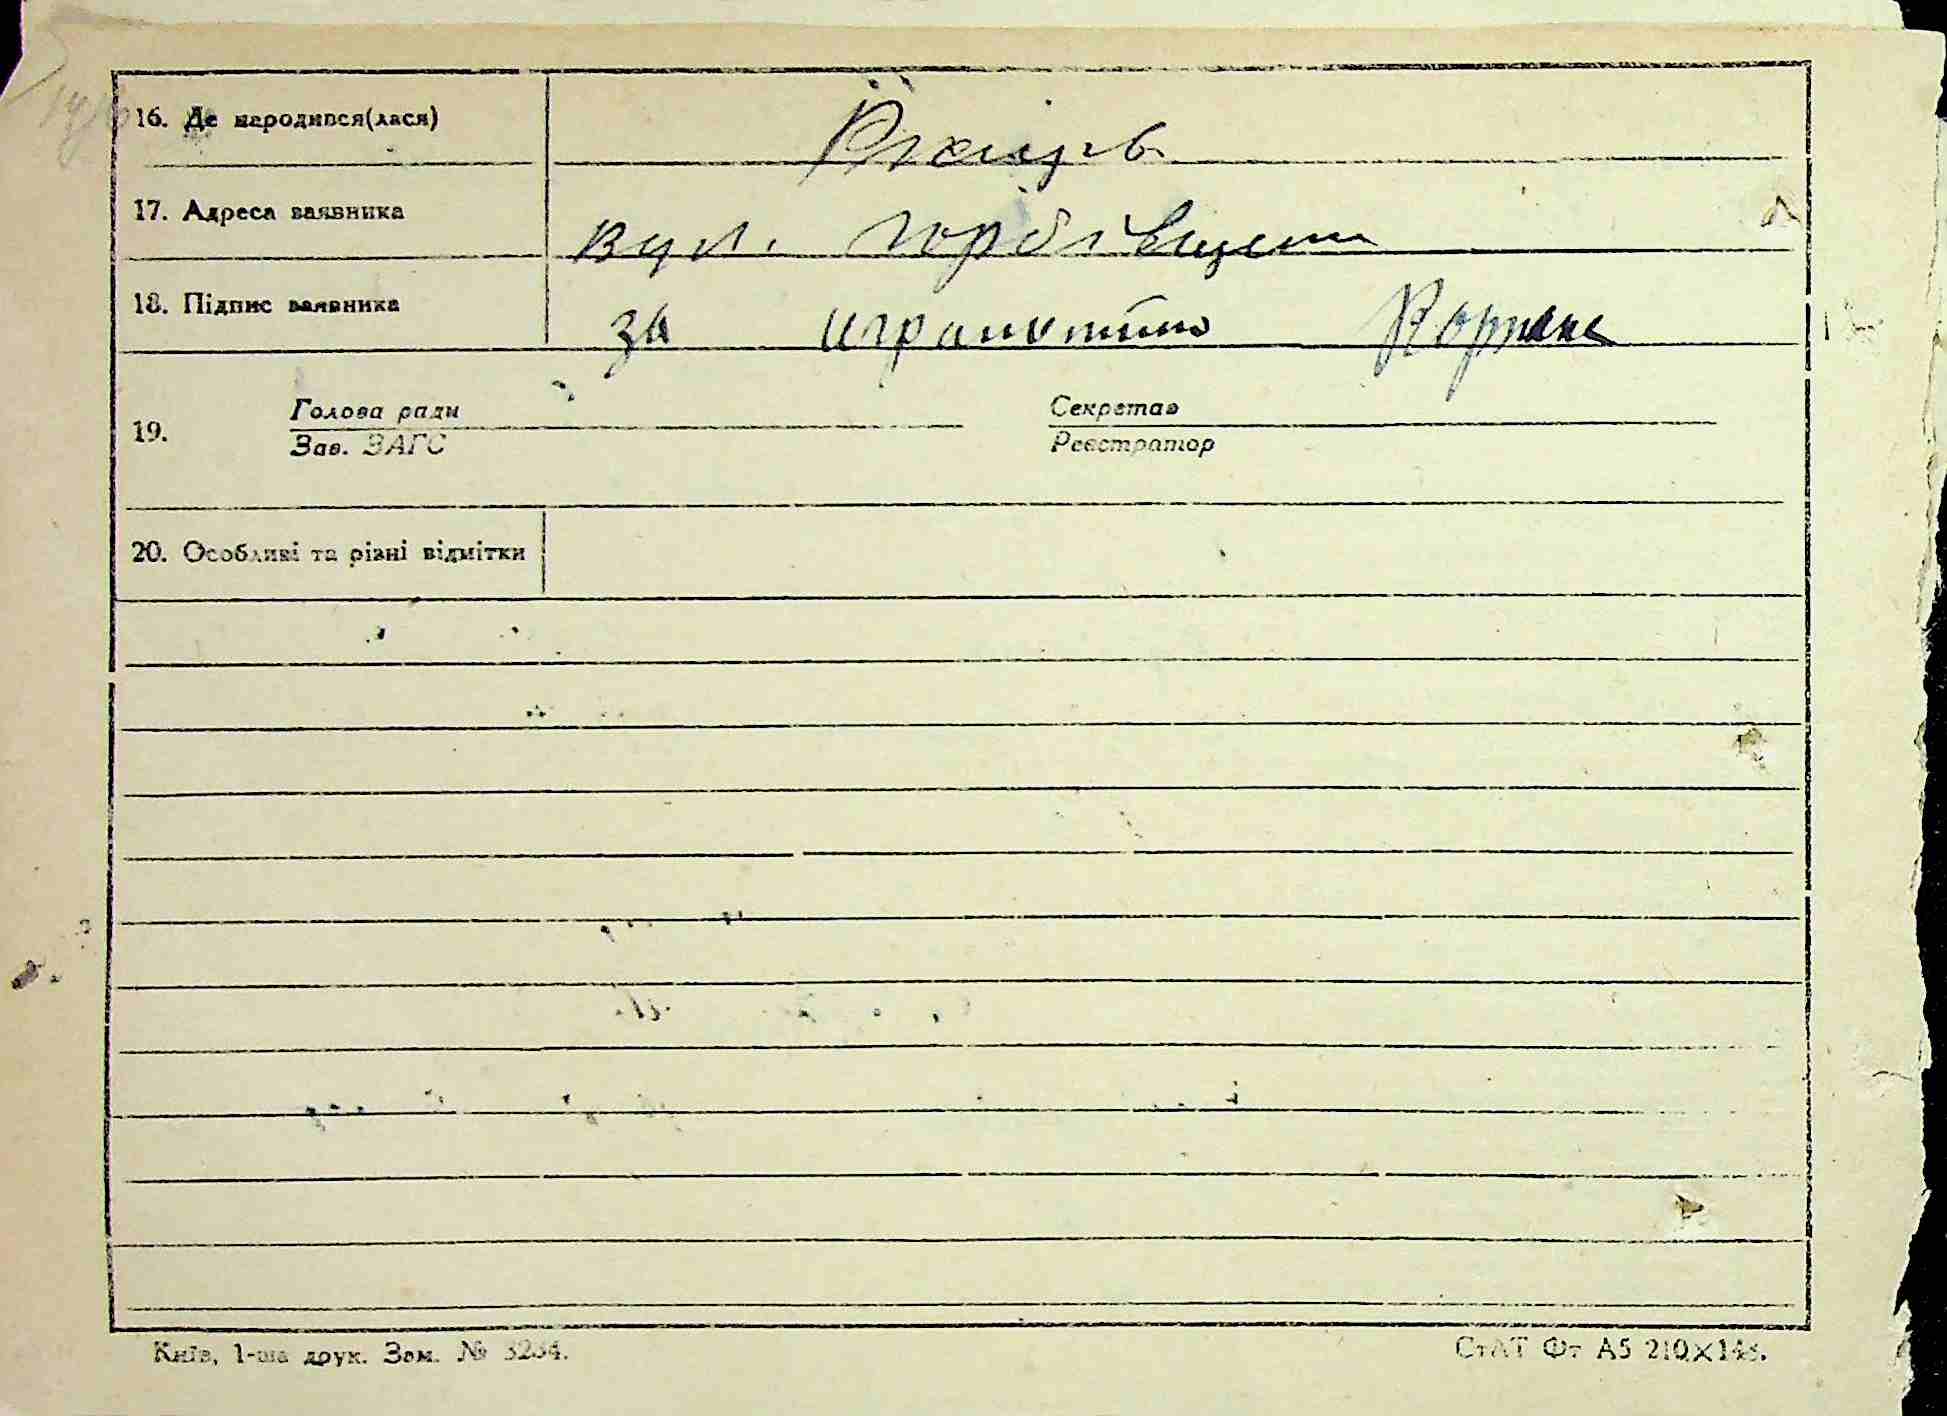 16. Де народився(лася)
17. Адреса заявника вул.
18. Підпис заявника за
Голова ради Секретар
19.
Зав. ЗАГС Реєстратор
20. Особливі та різні відмітки
Київ, 1-ша друк. Зам. № 3234. СтАТ Фт А5 210×148.